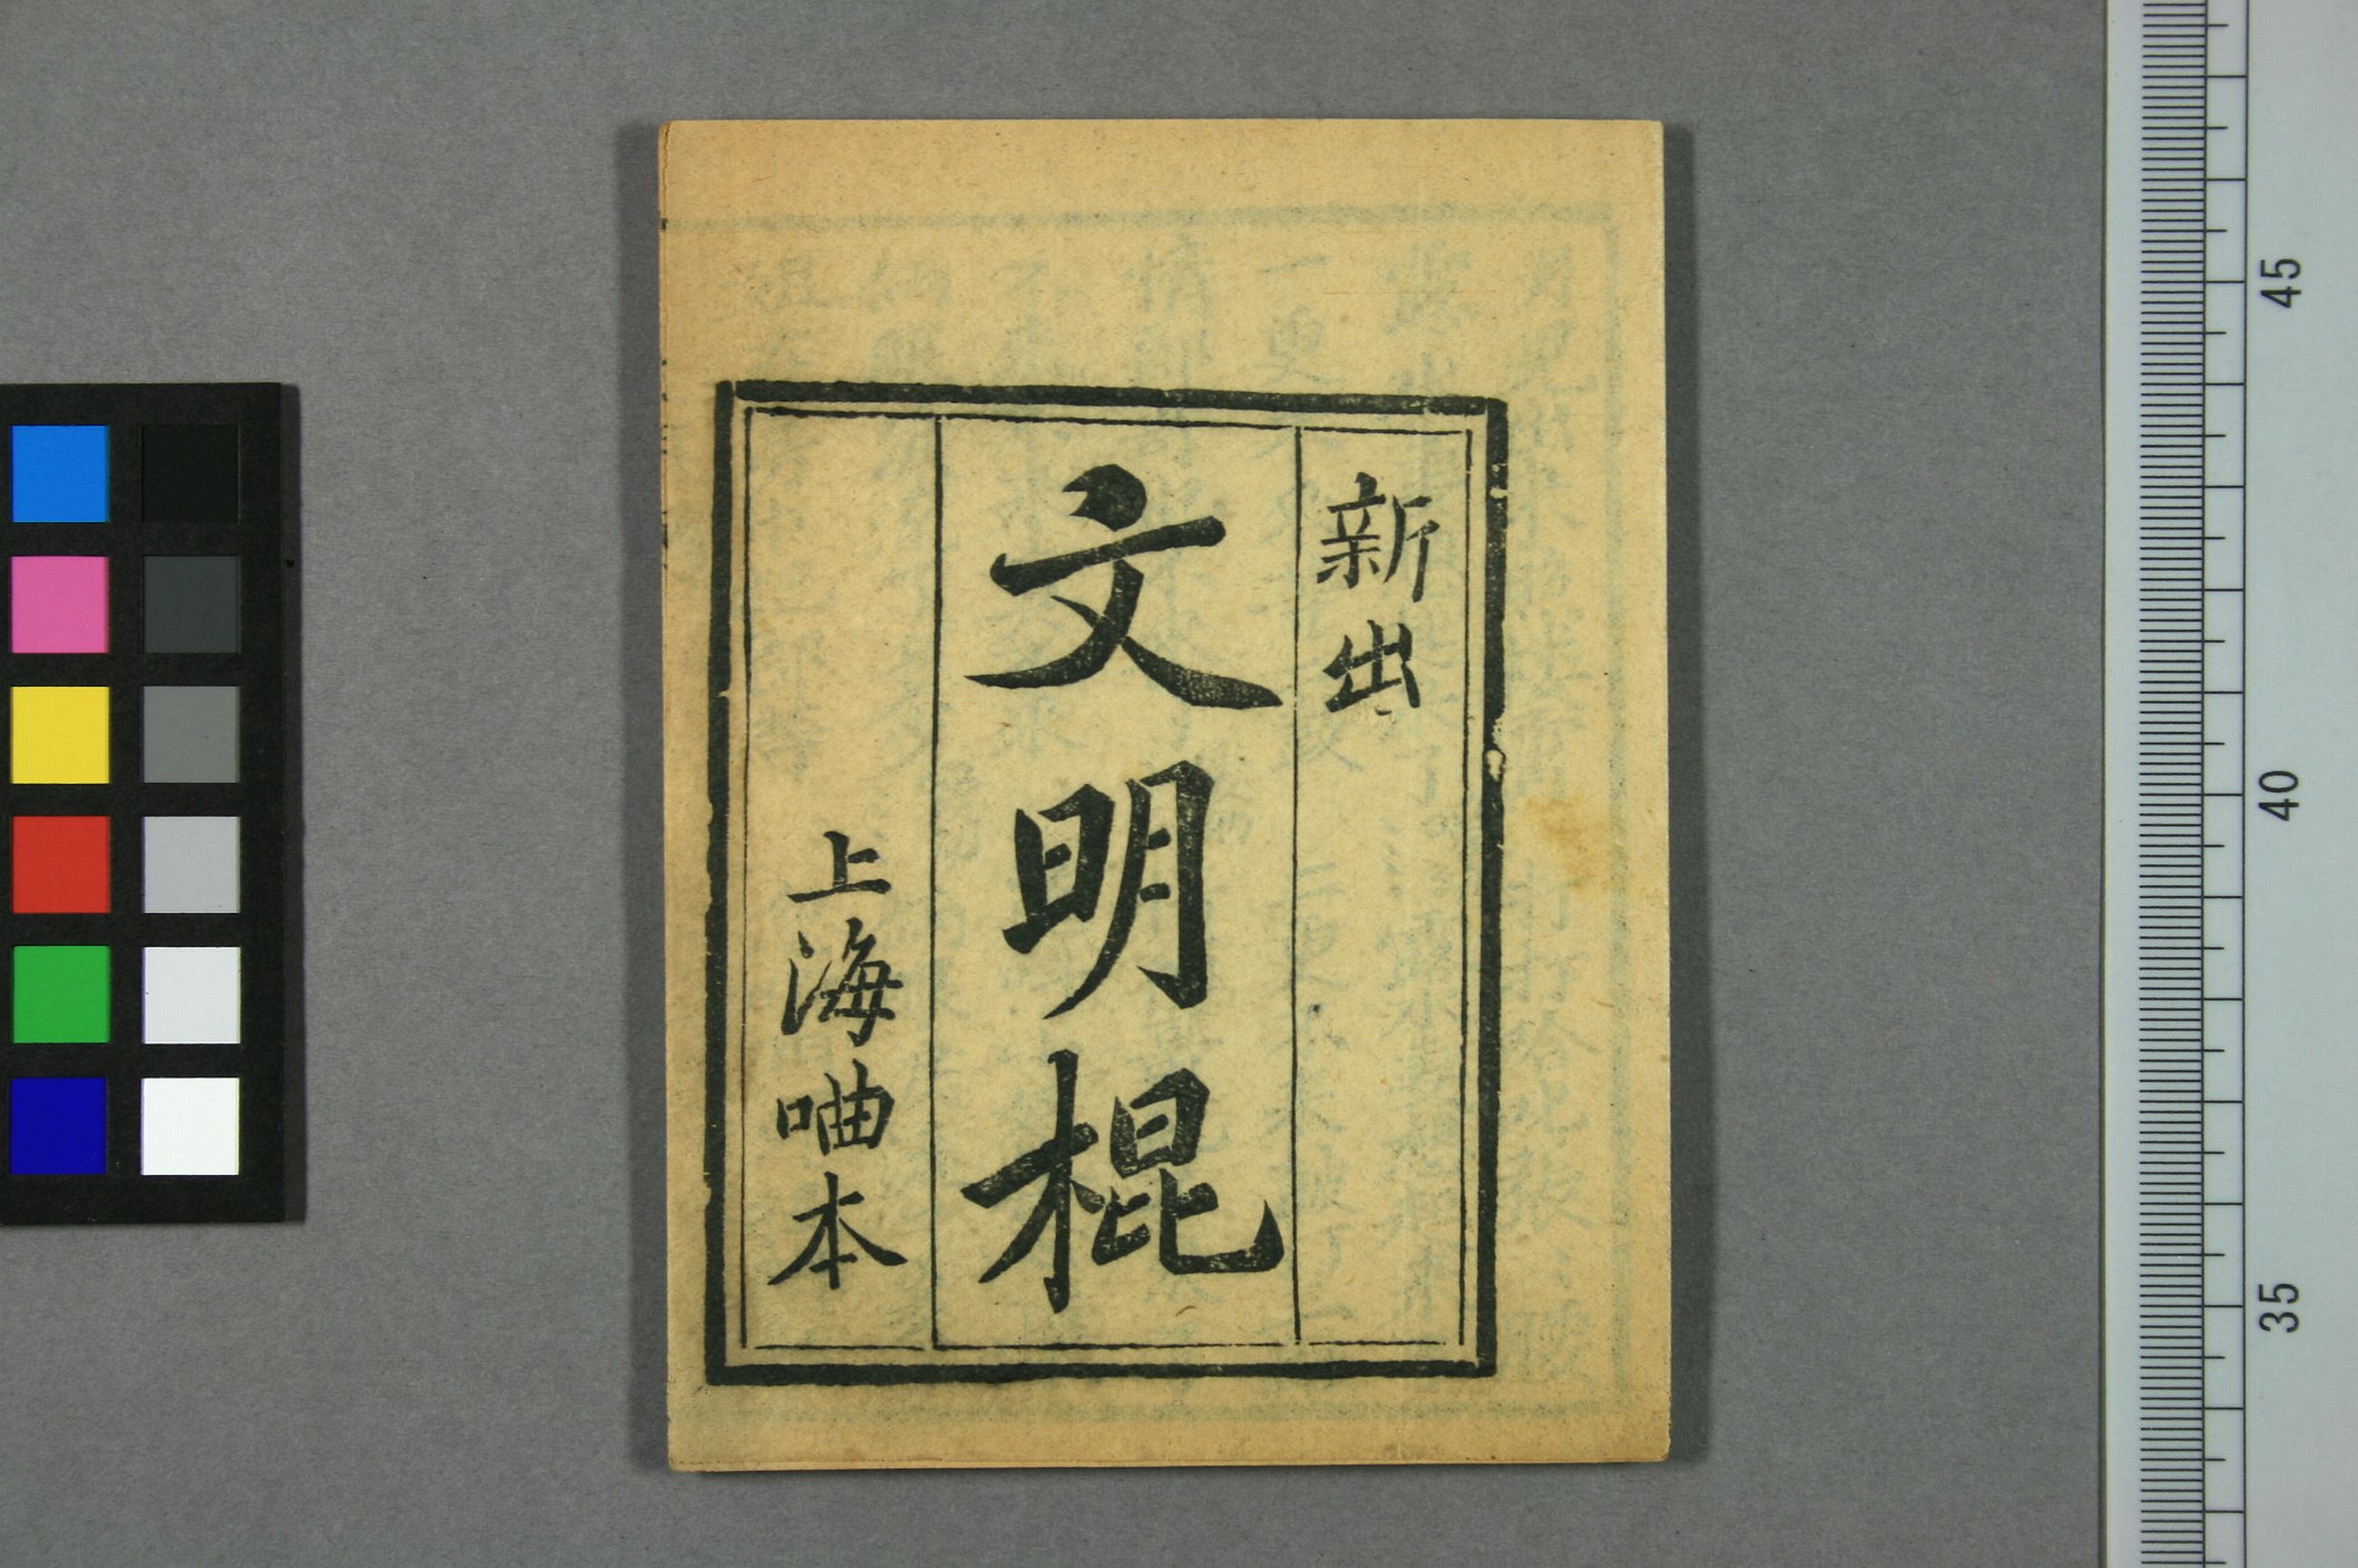 新出
文明棍
上海㖆本
45
40
35